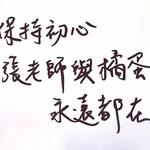 保持初心
張老師與橘蛋
永遠都在